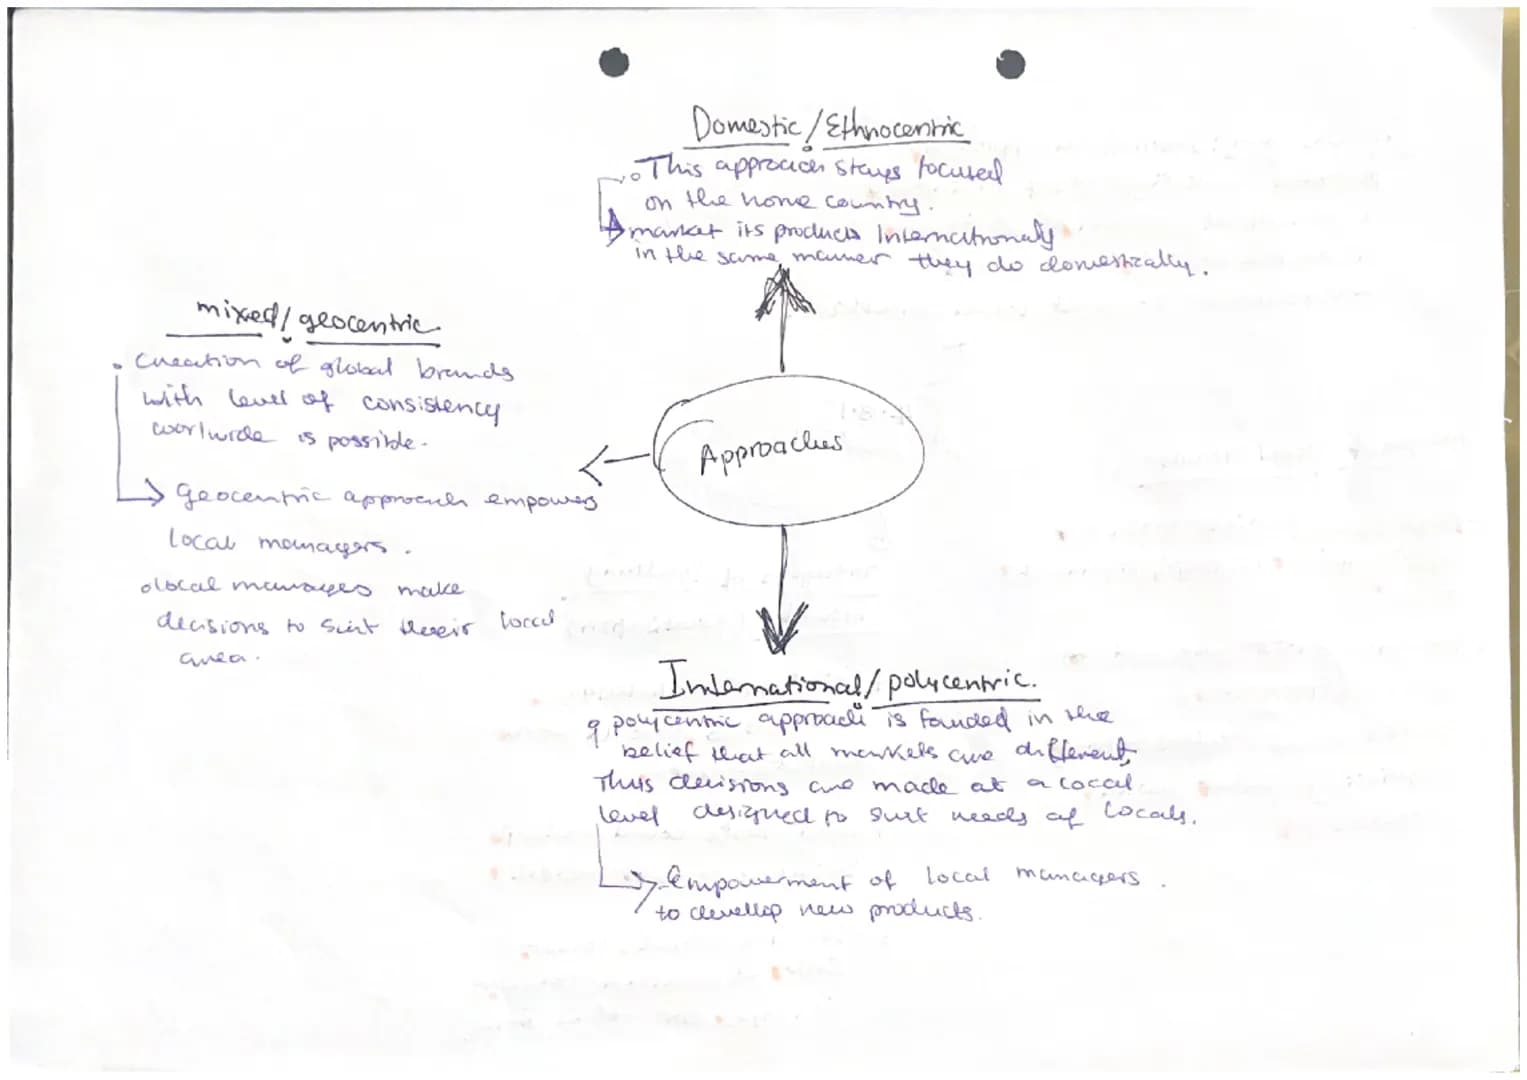 Domestic/Ethnocentric
This approach stays focused
on the home country.
market its products Internationaly
in the same manner they do domestically.
mixed/geocentric
Creation of global brands
with level of consistency
worlwide is possible.
Geocentric approach empowers
local managers.
local manages make
decisions to suit their local
area.
Approaches
International/polycentric.
polycentric approach is founded in the
belief that all markets are different,
Thus decisions are made at a local
level designed to suit needs of locals.
Empowerment of local managers.
to devellop new products.